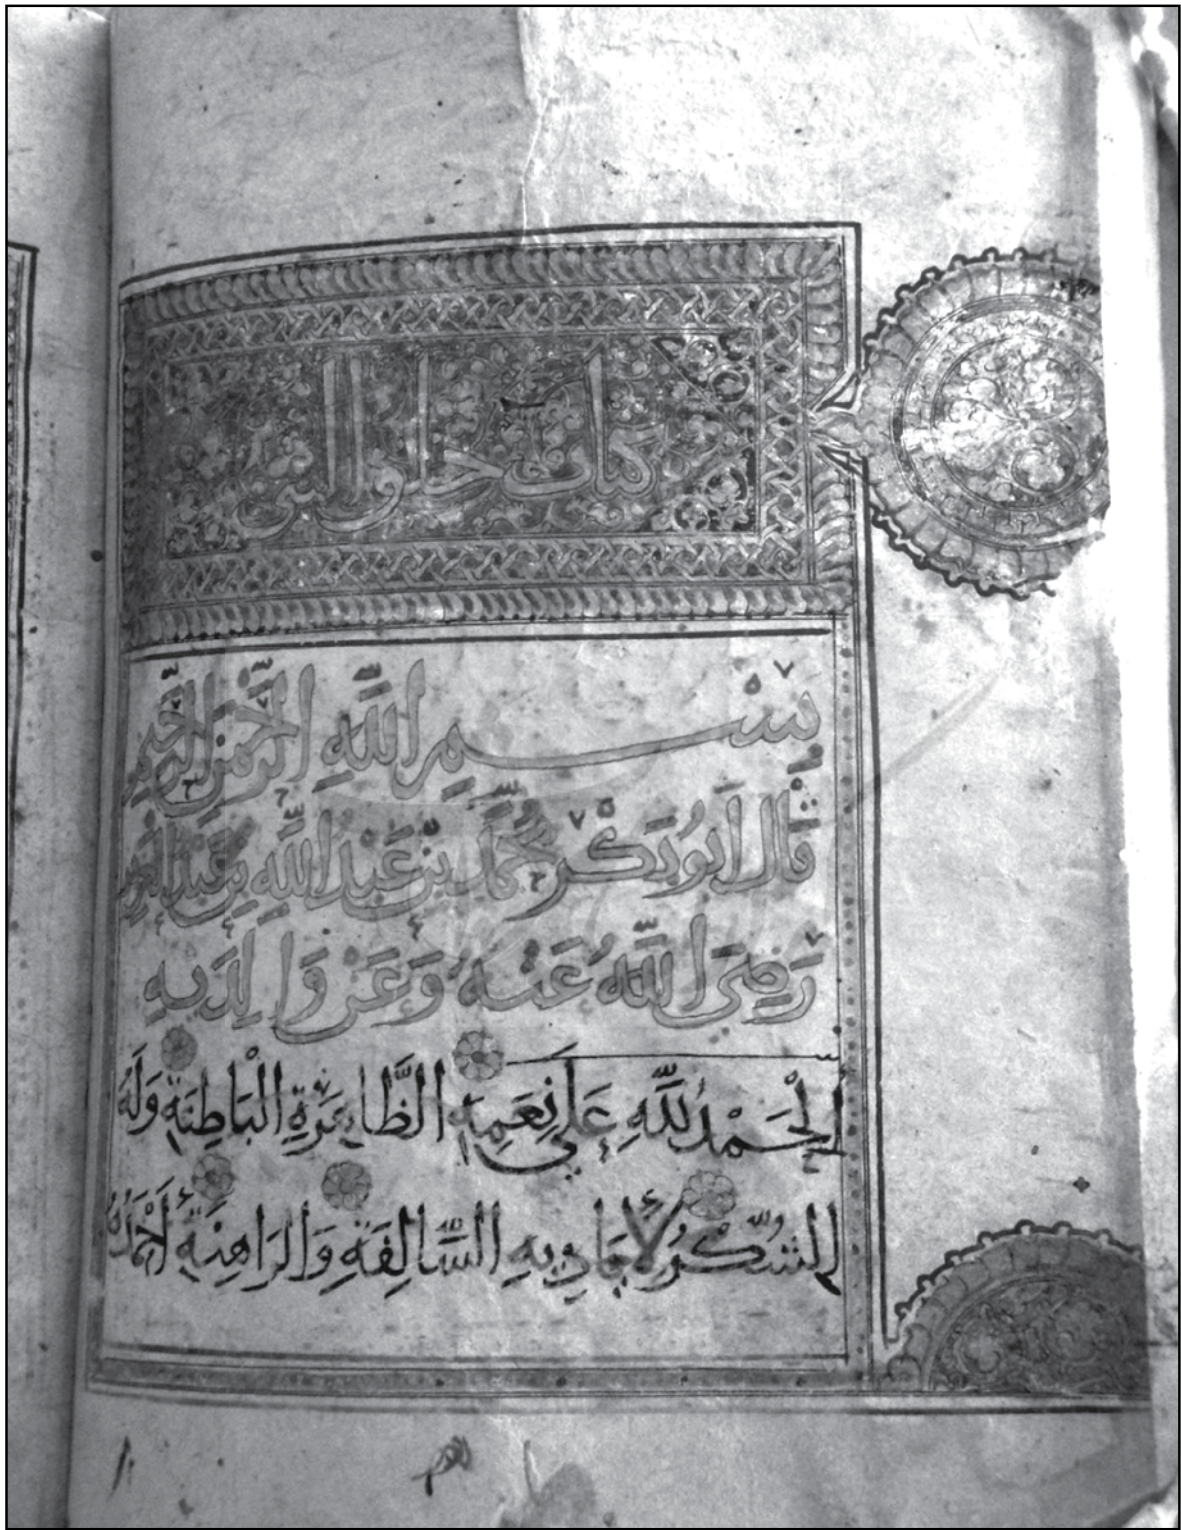 كتاب خلق النبي
بِسْمِ اللَّهِ الرَّحْمَنِ الرَّحِيمِ
قَالَ أَبُو بَكْر مُحَمَّد بن عَبْدِ اللَّهِ بن عَبْدِ العَزِيز
رَضِيَ اللَّهُ عَنْهُ وَعَنْ وَالِدَيهِ
الْحَمْدُ لِلَّهِ عَلَى نِعَمِهِ الظَّاهِرَةِ الْبَاطِنَةِ وَلَهُ
الشُّكْرُ لِأَيَادِيهِ السَّالِفَةِ وَالرَاهِنَةِ أَحْمَدُهُ